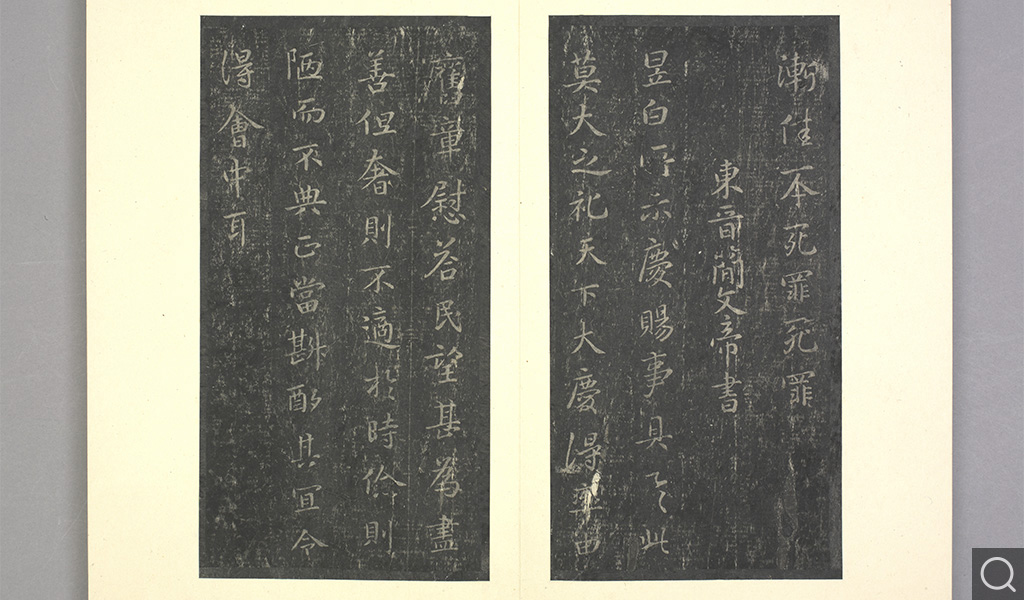 漸佳不死罪死罪
東晉簡文帝書
昱白所示慶賜事具之此
莫大之礼天下大慶得率由
舊章慰答民望甚為盡
善但奢則不適於時儉則
陋而不典正當斟酌其宜令
得會中耳